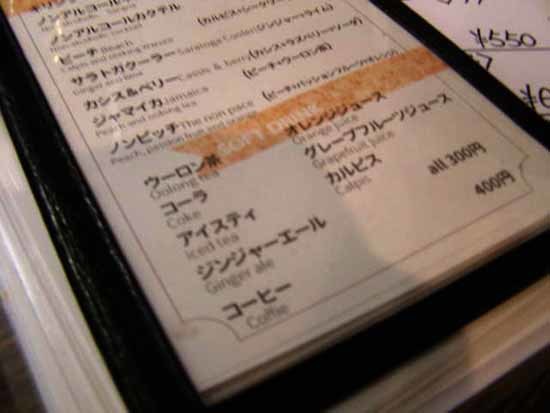 ノンアルコールカクテル
ピーチ Beach
サラトガクーラー Saratoga Cooler (ジンジャー+ライム)
Ginger ale & lime
カシス&ベリー Cassis & berry (カシス+ラズベリー+ソーダ)
ジャマイカ Jamaica (ピーチ+ウーロン茶)
Peach and oolong tea
ノンピッチ The non pace (ピーチ+パッションフルーツ+オレンジ)
SOFT DRINK
ウーロン茶
Oolong tea
コーラ
Coke
アイスティ
Iced tea
ジンジャーエール
Ginger ale
コーヒー
Coffie
オレンジジュース
Orange juice
グレープフルーツジュース
Grapefruit juice
カルピス
Calpis
all 300円
400円
¥550